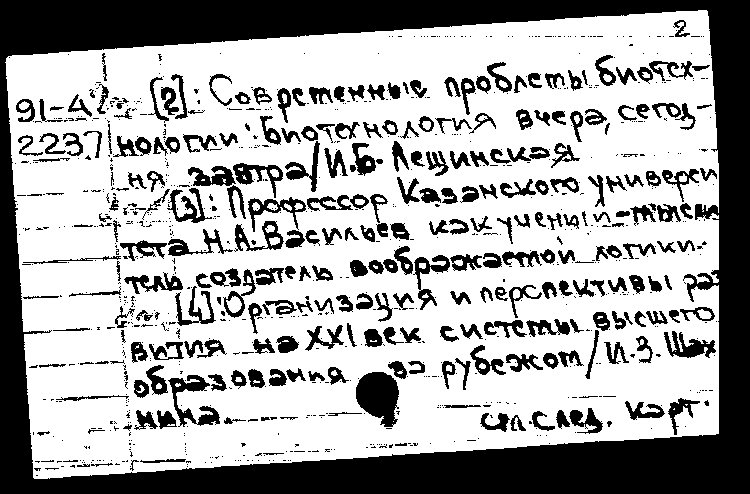 2
91-4 [2]: Современные проблемы биотех-
2237 нологии: Биотехнология вчера, сегод-
ня завтра/И.Б. Лещинская
[3]: Профессор Казанского универси
тета Н.А. Васильев как ученый-мысли
тель создатель воображаемой логики.
[4]: Организация и перспективы раз
вития на XXI век системы высшего
образования за рубежом/И.З. Шах
нина.
см. след. карт.